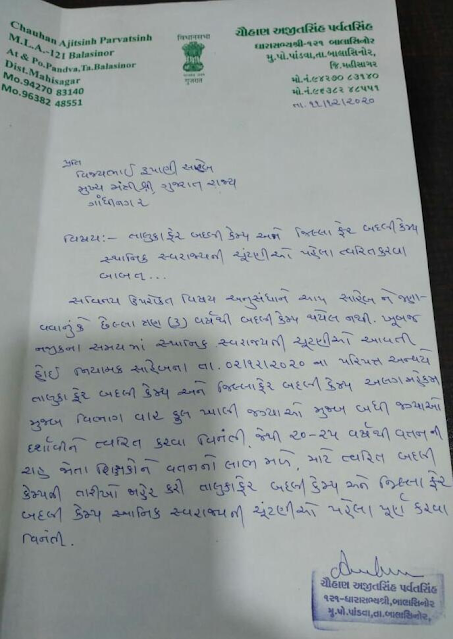 Chauhan Ajitsinh Parvatsinh
M.L.A.-121 Balasinor
At & Po.Pandva,Ta.Balasinor
Dist.Mahisagar
Mo.94270 83140
Mo.96382 48551
વિધાનસભા
ગુજરાત
ચૌહાણ અજીતસિંહ પર્વતસિંહ
ધારાસભ્યશ્રી-૧૨૧ બાલાસિનોર,
મુ.પો.પાંડવા,તા.બાલાસિનોર,
જિ.મહીસાગર
મો.નં.૯૪૨૭૦ ૮૩૧૪૦
મો.નં.૯૬૩૮૨ ૪૮૫૫૧
તા. ૧૧/૧૨/૨૦૨૦
પ્રતિ
વિજયભાઈ રૂપાણી સાહેબ
મુખ્ય મંત્રી શ્રી, ગુજરાત રાજ્ય
ગાંધીનગર
વિષય:- તાલુકાફેર બદલી કેમ્પ અને જિલ્લાફેર બદલી કેમ્પ
સ્થાનિક સ્વરાજ્યની ચૂંટણીઓ પહેલા ત્વરિત કરવા
બાબત...
સવિનય ઉપરોક્ત વિષય અનુસંધાને આપ સાહેબ ને જણા-
વવાનું કે છેલ્લા ત્રણ (૩) વર્ષથી બદલી કેમ્પ થયેલ નથી. ખૂબજ
નજીકના સમયમાં સ્થાનિક સ્વરાજ્યની ચૂંટણીઓ આવતી
હોઈ નિયામક સાહેબના તા. ૦૨/૧૨/૨૦૨૦ ના પરિપત્ર અન્વયે
તાલુકા ફેર બદલી કેમ્પ અને જિલ્લાફેર બદલી કેમ્પ અલગ મહેકમ
મુજબ વિભાગ વાર કુલ ખાલી જગ્યાઓ મુજબ બધી જગ્યાઓ
દર્શાવીને ત્વરિત કરવા વિનંતી. જેથી ૨૦-૨૫ વર્ષથી વતન ની
રાહ જોતા શિક્ષકોને વતનનો લાભ મળે. માટે ત્વરિત બદલી
કેમ્પની તારીખો જાહેર કરી તાલુકાફેર બદલી કેમ્પ અને જિલ્લા ફેર
બદલી કેમ્પ સ્થાનિક સ્વરાજ્ય ની ચૂંટણીઓ પહેલા પૂર્ણ કરવા
વિનંતી.
ચૌહાણ અજીતસિંહ પર્વતસિંહ
૧૨૧-ધારાસભ્યશ્રી,બાલાસિનોર
મુ.પો.પાંડવા,તા.બાલાસિનોર,